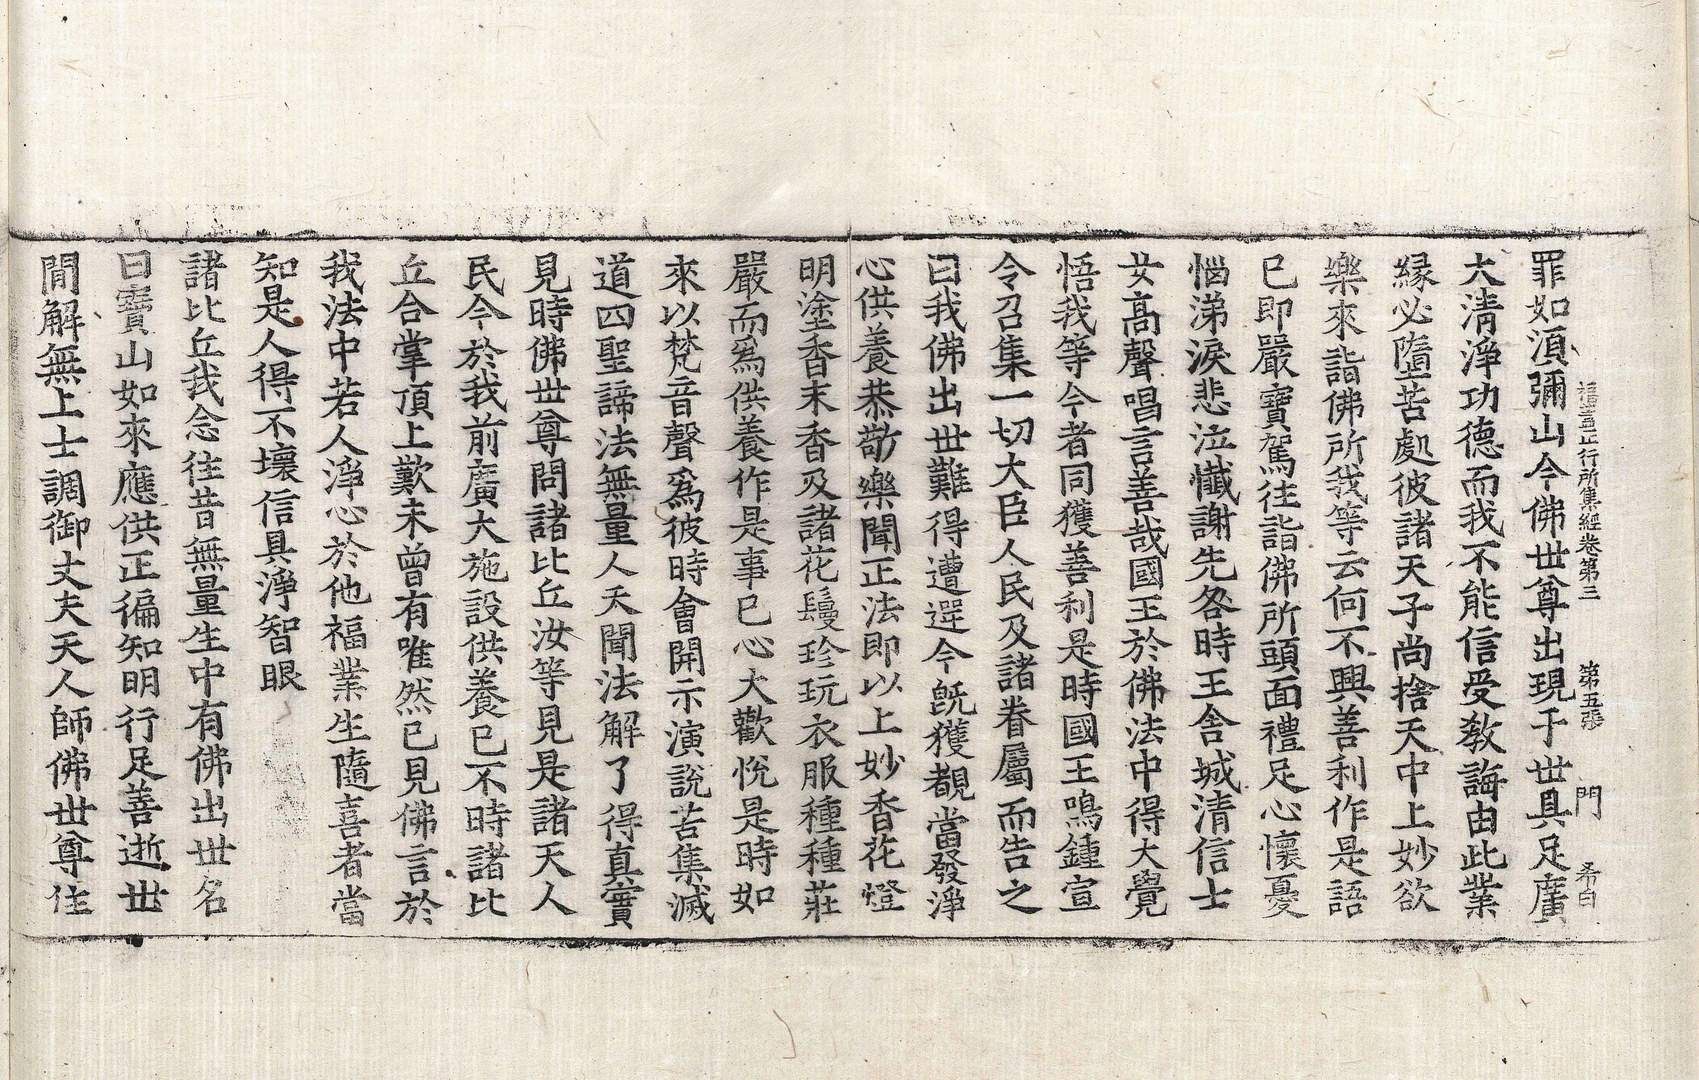 罪如湏彌山今佛世尊出現于世具足廣
福蓋正行所集經卷第三 第五張 門 希白
大清淨功德而我不能信受教誨由此業
緣必墮苦處彼諸天子尚捨天中上妙欲
樂來詣佛所我等云何不興善利作是語
已即嚴寶駕往詣佛所頭面禮足心懷憂
惱涕淚悲泣懺謝先咎時王舍城清信士
女高聲唱言善哉國王於佛法中得大覺
悟我等今者同獲善利是時國王鳴鍾宣
令召集一切大臣人民及諸眷屬而告之
曰我佛出世難得遭遇今旣獲覩當發淨
心供養恭敬樂聞正法即以上妙香花燈
明塗香末香及諸花鬘珍玩衣服種種莊
嚴而為供養作是事已心大歡悅是時如
來以梵音聲爲彼時會開示演說苦集滅
道四聖諦法無量人天聞法解了得真實
見時佛世尊問諸比丘汝等見是諸天人
民今於我前廣大施設供養已不時諸比
丘合掌頂上歎未曾有唯然已見佛言於
我法中若人淨心於他福業生隨喜者當
知是人得不壞信具淨智眼
諸比丘我念往昔無量生中有佛出世名
曰寶山如來應供正徧知明行足善逝世
閒解無上士調御丈夫天人師佛世尊住